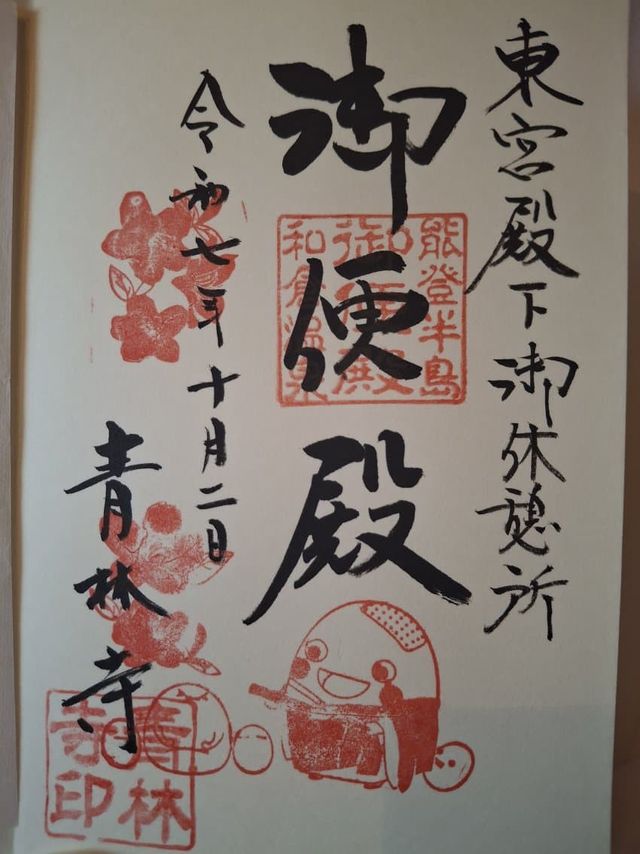 東宮殿下御休憩所
御便殿
能登半島
御便殿
和倉温泉
令和七年十月二日
青林寺
青林
寺印